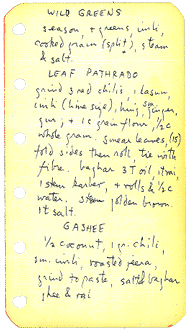 WILD GREENS
season, + greens, imli,
cooked grain (split), steam
& salt.
LEAF PATHRADO
grind 3 red chili, 1 lasun,
imli (lime size), hing, ginger,
gur; + 1 c grain flour, 1/2 c
whole gram. Smear leaves, (15)
fold sides then roll, tie with
fibre. baghar 3 T oil,
1 stem + rolls & 1/2 c
water. steam golden brown.
1 t salt.
GASHEE
1/2 coconut, 1 gr. chili,
sm. imli, roasted jeera,
grind to paste, salt & baghar
ghee & rai